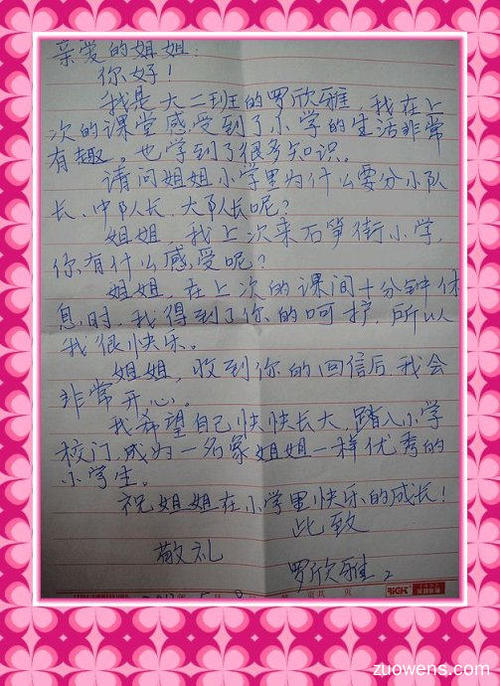 亲爱的姐姐:
你好!
我是大二班的罗欣雅,我在上
次的课堂感受到了小学的生活非常
有趣。也学到了很多知识。
请问姐姐小学里为什么要分小队
长、中队长、大队长呢?
姐姐,我上次来石笋街小学,
你有什么感受呢?
姐姐,在上次的课间十分钟休
息时,我得到了你的呵护,所以
我很快乐。
姐姐,收到你的回信后,我会
非常开心。
我希望自己快快长大,踏入小学
校门,成为一名象姐姐一样优秀的
小学生。
祝姐姐在小学里快乐的成长!
此致
敬礼
罗欣雅
zuowens.com